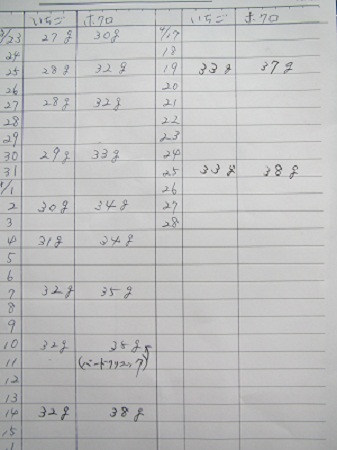 いちご ポフロ 4/17 いちご ポフロ
3/23 27g 30g
24 18
25 28g 32g 19 33g 37g
26 20
27 28g 32g 21
28 22
29 23
30 29g 33g 24
31 25 33g 38g
4/1 26
2 30g 34g 27
3 28
4 31g 34g
5
6
7 32g 35g
8
9
10 32g 35g
11
12
13
14 32g 38g
15